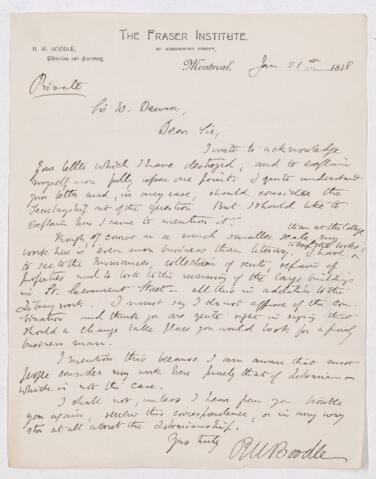 THE FRASER INSTITUTE,
R. W. BOODLE,
Librarian and Secretary.
Montreal, Jan. 21 1888
Private
Sir W. Dawson,
Dear Sir,
I write to acknowledge
your letter which I have destroyed, and to explain
myself more fully upon one point. I quite understand
your letter and, in any case, should consider the
Secretaryship out of the question. But I should like to
explain how I came to mention it.
than at the College
Though of course on a much smaller scale my
work here is even more business than literary. I have
to see to the insurances, collection of rents, repairs of
properties and to look to the of the large buildings
in St. Sacrament Street — all this in addition to the
Library work. I must say I do not approve of this com-
bination and think you are quite right in saying that
should a change take place you would look for a purely
business man.
I mention this because I am aware that most
people consider my work here purely that of Librarian —
which is not the case.
I shall not, unless I hear from you trouble
you again, renew this correspondence, or in any way
stir at all about the Librarianship.
Yrs truly
R W Boodle